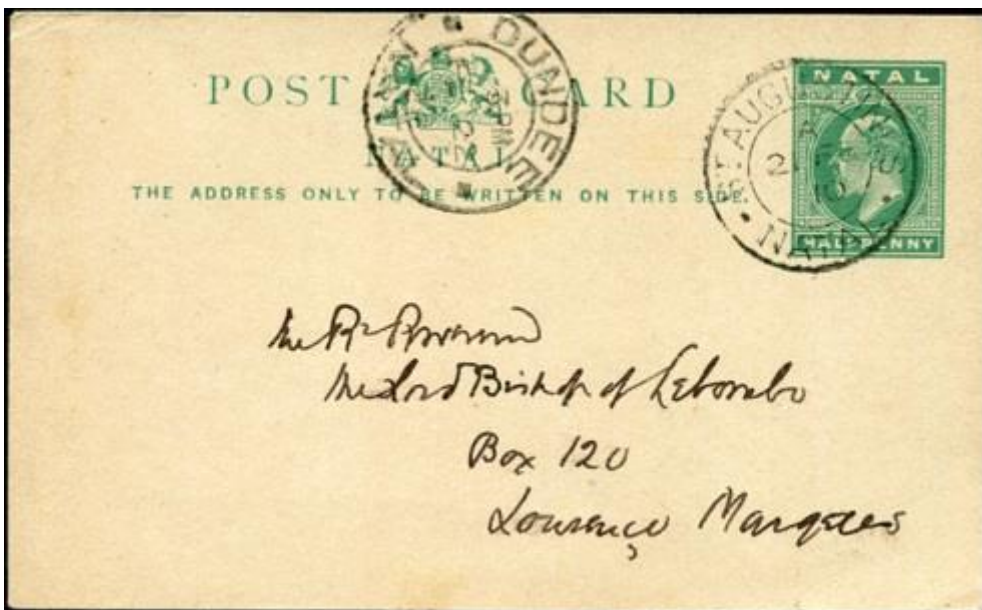 POST CARD
NATAL
THE ADDRESS ONLY TO BE WRITTEN ON THIS SIDE.
DUNDEE
NATAL
PM
ST AUGUSTINES
NATAL
A
21
10
NATAL
HALFPENNY
The Rt Reverend
The Lord Bishop of Lebombo
Box 120
Lourenço Marques